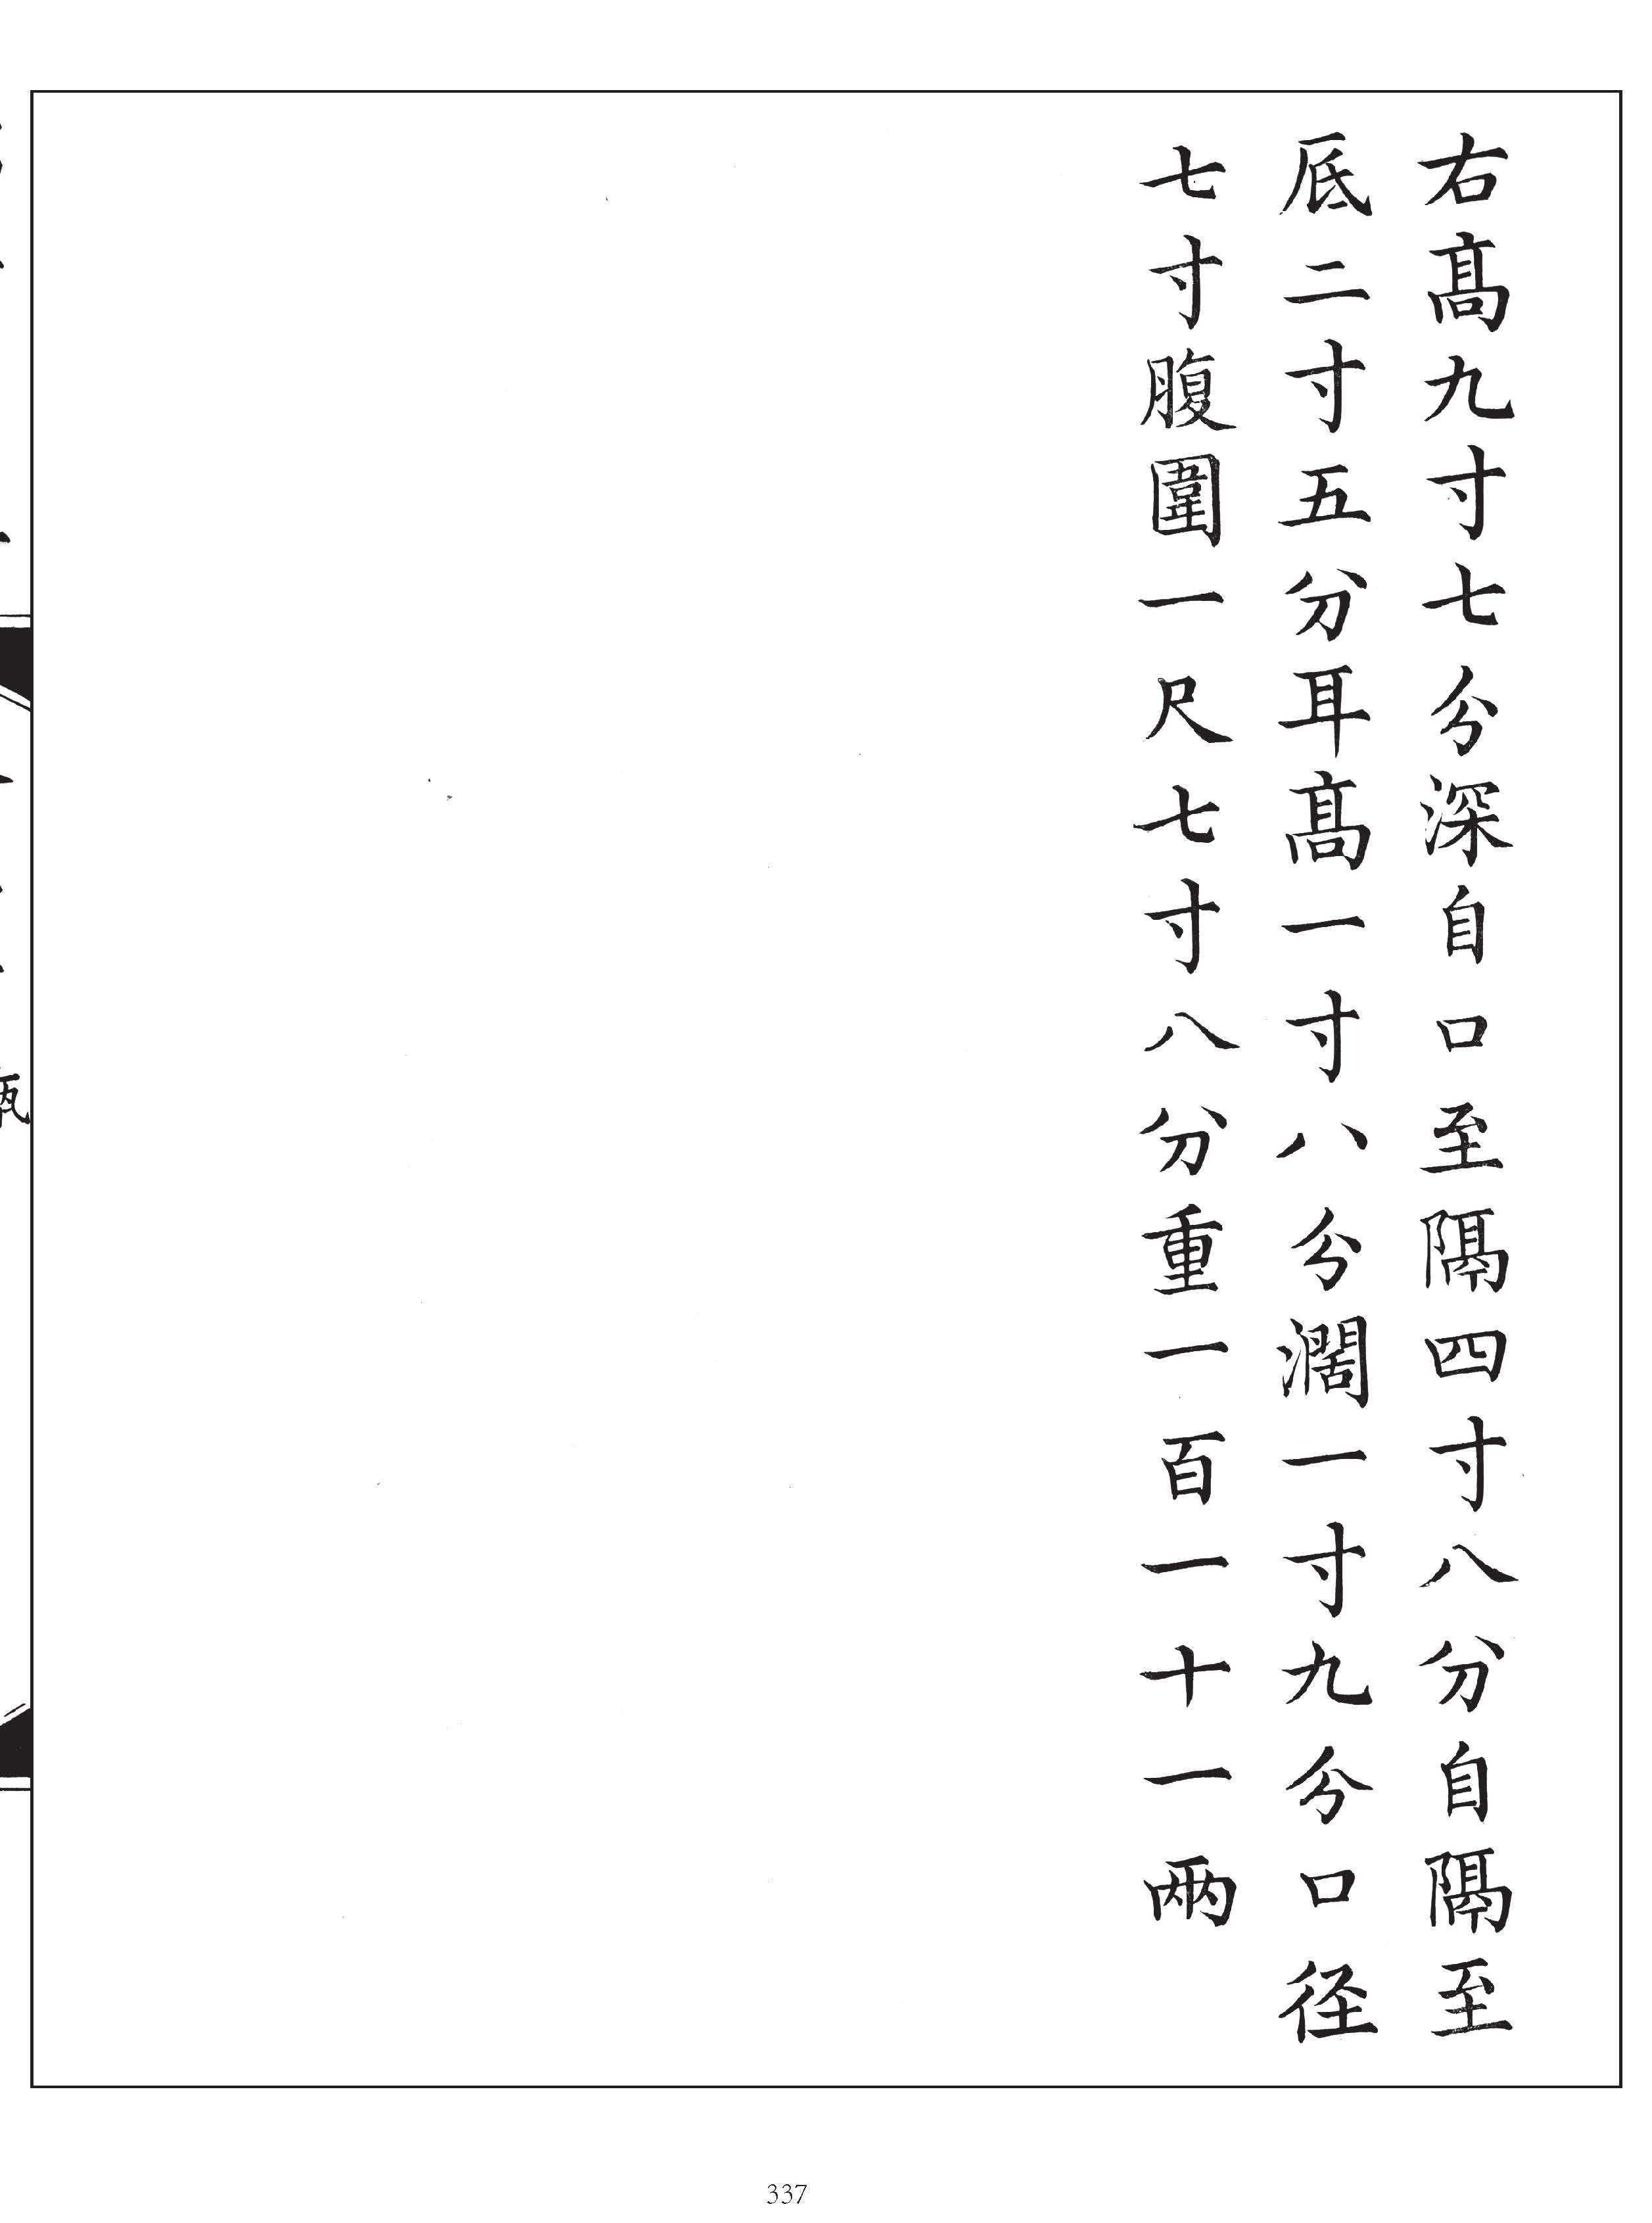 右髙九寸七分深自口至隔四寸八分自隔至
底二寸五分耳髙一寸八分濶一寸九分口径
七寸腹圍一尺七寸八分重一百一十一两
337